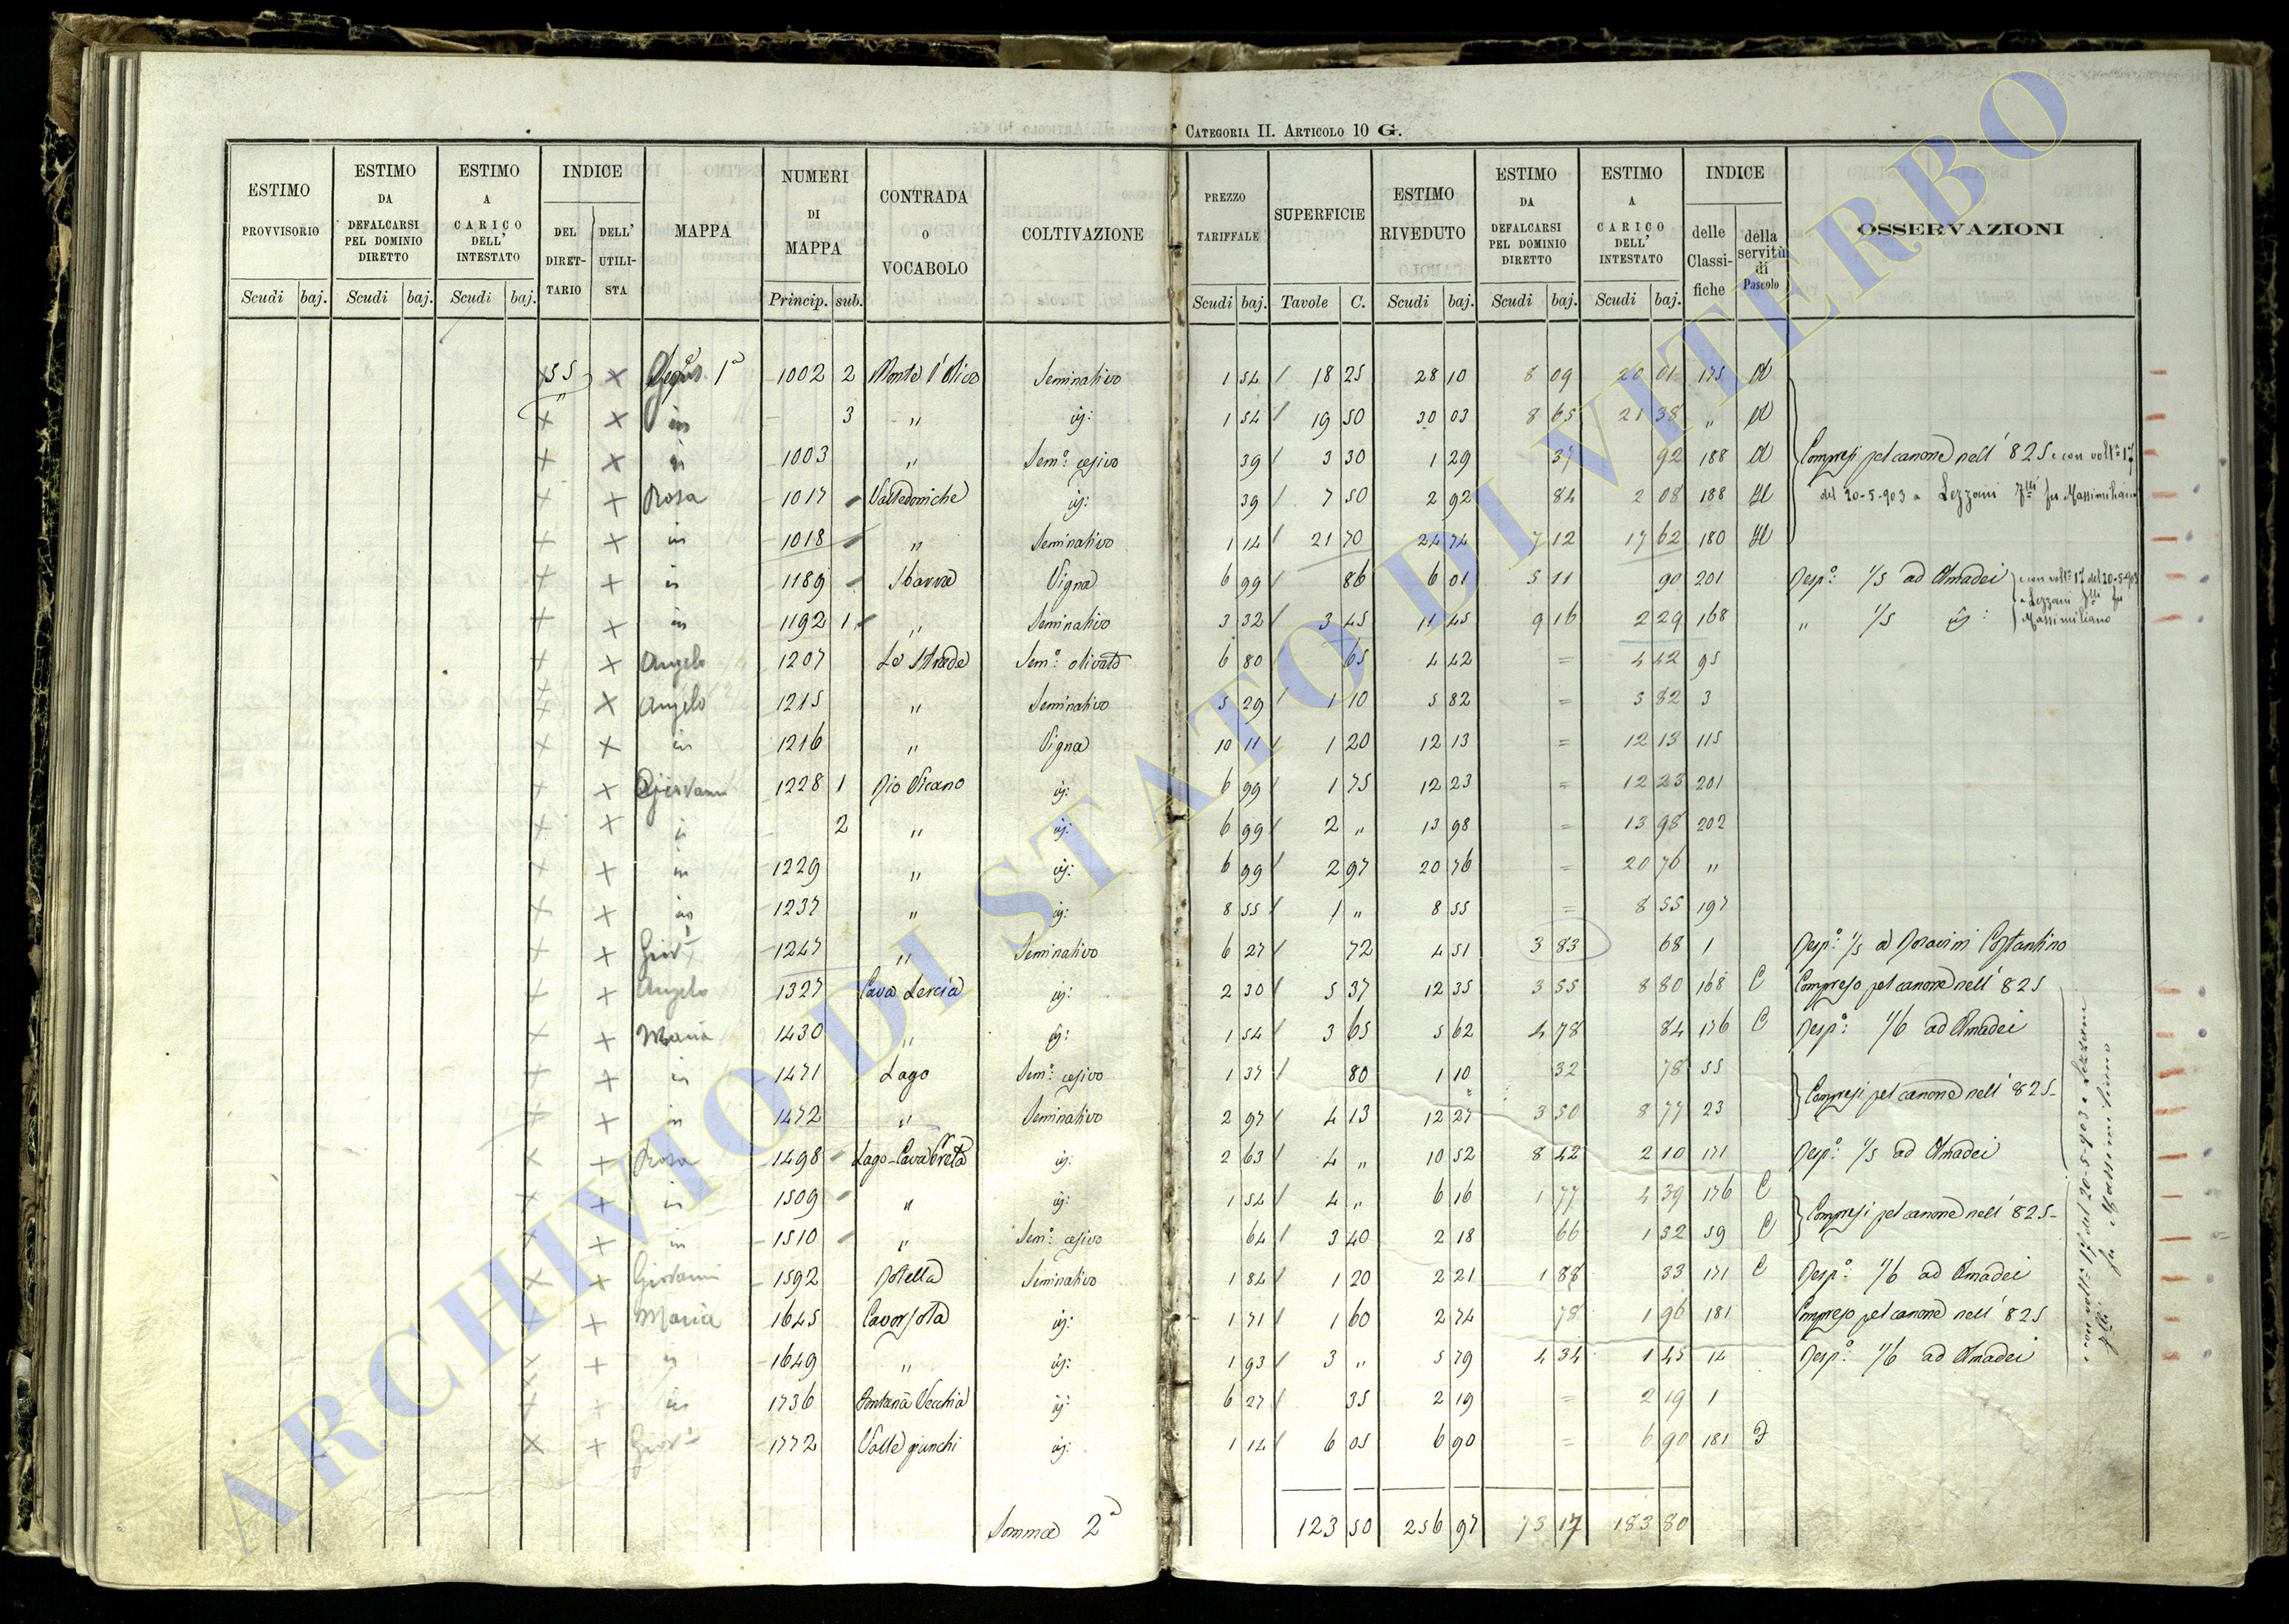 CATEGORIA II. ARTICOLO 10 G.
ESTIMO PROVVISORIO | ESTIMO DA DEFALCARSI PEL DOMINIO DIRETTO | ESTIMO A CARICO DELL' INTESTATO | INDICE | MAPPA | NUMERI DI MAPPA | CONTRADA O VOCABOLO | COLTIVAZIONE | PREZZO TARIFFALE | SUPERFICIE | ESTIMO RIVEDUTO | ESTIMO DA DEFALCARSI PEL DOMINIO DIRETTO | ESTIMO A CARICO DELL' INTESTATO | INDICE | OSSERVAZIONI
DEL DIRET-TARIO | DELL' UTILI-STA | delle Classi-fiche | della servitù di Pascolo
Scudi | baj. | Scudi | baj. | Scudi | baj. | Princip. | sub. | Scudi | baj. | Tavole | C. | Scudi | baj. | Scudi | baj. | Scudi | baj.
1ª 1002 2 Monte l'Olivo Seminativo 1 54 18 25 28 10 8 09 20 01 175
in 3 " ig: 1 54 19 50 30 03 8 65 21 38 "
in 1003 " Sem.º cesivo 39 3 30 1 29 37 92 188 Compresi pel canone nell' 825 e con volt.ª 17
Rosa 1017 Valledoniche ig: 39 7 50 2 92 84 2 08 188 del 20-5-903 a Lezzani f.lli fu Massimiliano
in 1018 " Seminativo 1 14 21 70 24 74 7 12 17 62 180
in 1189 Sbarra Vigna 6 99 86 6 01 5 11 90 201 Resp.º: 1/5 ad Amadei e con volt.ª 17 del 20-5-903
in 1192 1 " Seminativo 3 32 3 45 11 45 9 16 2 29 168 " 1/5 ig: a Lezzani f.lli fu Massimiliano
Angelo 1207 Le Strade Sem.º olivato 6 80 65 4 42 = 4 42 95
Angelo 1215 " Seminativo 5 29 1 10 5 82 = 5 82 3
in 1216 " Vigna 10 11 1 20 12 13 = 12 13 115
Giovanni 1228 1 Rio Vicano ig: 6 99 1 75 12 23 = 12 23 201
in 2 " ig: 6 99 2 " 13 98 = 13 98 202
in 1229 " ig: 6 99 2 97 20 76 = 20 76 "
in 1237 " ig: 8 55 1 " 8 55 = 8 55 197
Giov.i 1247 " Seminativo 6 27 72 4 51 3 83 68 1 Resp.º: 1/5 a Costantino
Angelo 1327 Cava Lercia ig: 2 30 5 37 12 35 3 55 8 80 168 C Compreso pel canone nell' 825
Maria 1430 " ig: 1 54 3 65 5 62 4 78 84 176 C Resp.º: 1/6 ad Amadei
in 1471 Lago Sem.º cesivo 1 37 80 1 10 32 78 55
in 1472 " Seminativo 2 97 4 13 12 27 3 50 8 77 23 Compresi pel canone nell' 825
Rosa 1498 Lago-Cava ig: 2 63 4 " 10 52 8 42 2 10 171 Resp.º: 1/5 ad Amadei
in 1509 " ig: 1 54 4 " 6 16 1 77 4 39 176 C
in 1510 " Sem.º cesivo 64 3 40 2 18 66 1 52 59 C Compresi pel canone nell' 825
Giovanni 1592 Seminativo 1 84 1 20 2 21 1 88 33 171 C Resp.º: 1/6 ad Amadei
Maria 1645 ig: 1 71 1 60 2 74 78 1 96 181 Compreso pel canone nell' 825
in 1649 " ig: 1 93 3 " 5 79 4 34 1 45 14 Resp.º: 1/6 ad Amadei
in 1736 Fontana Vecchia ig: 6 27 35 2 19 = 2 19 1
Giov.i 1772 Valle giunchi ig: 1 14 6 05 6 90 = 6 90 181
e con volt.ª 17 del 20-5-903 a Lezzani
f.lli fu Massimiliano
Somma 2ª 123 50 256 97 73 17 183 80
ARCHIVIO DI STATO DI VITERBO